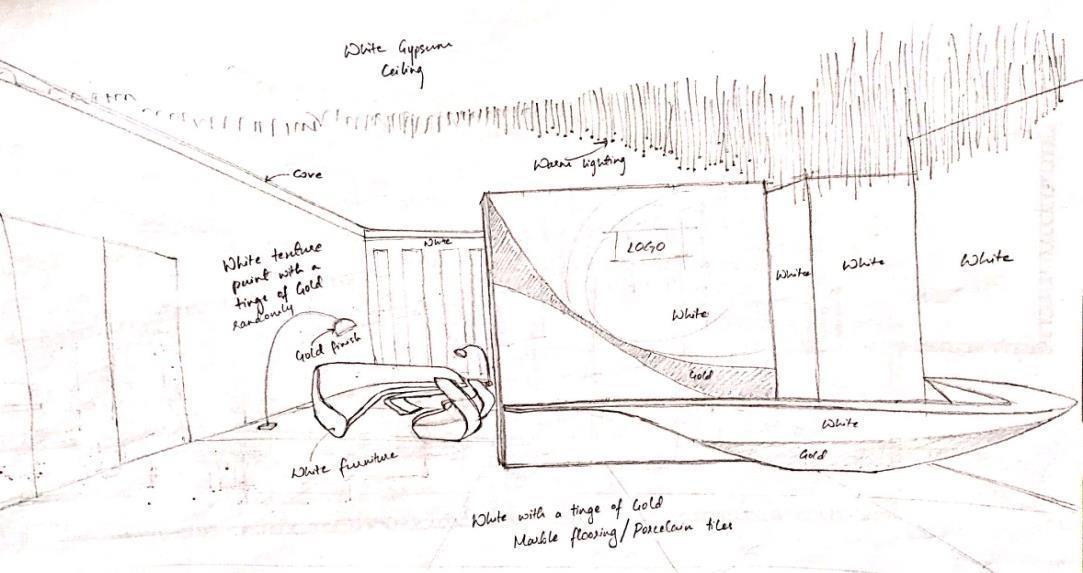 White Gypsum
Ceiling
Warm lighting
Cove
White
White texture
paint with a
tinge of Gold
randomly
Gold finish
LOGO
White
White
White
White
Gold
White
Gold
White furniture
White with a tinge of Gold
Marble flooring/Porcelain tiles